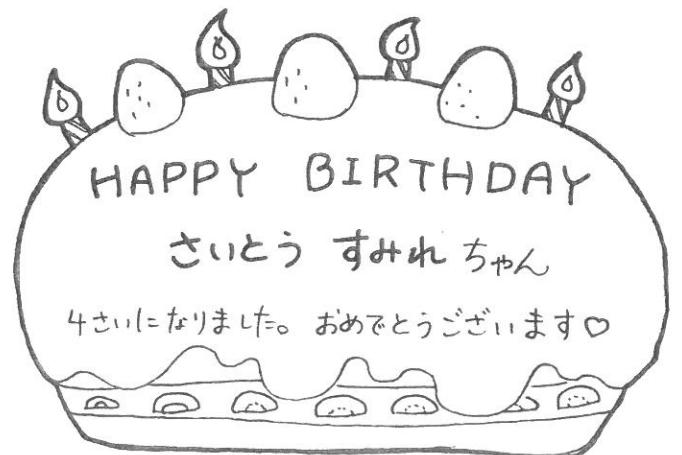 HAPPY BIRTHDAY
さいとう すみれ ちゃん
4さいになりました。 おめでとうございます♡